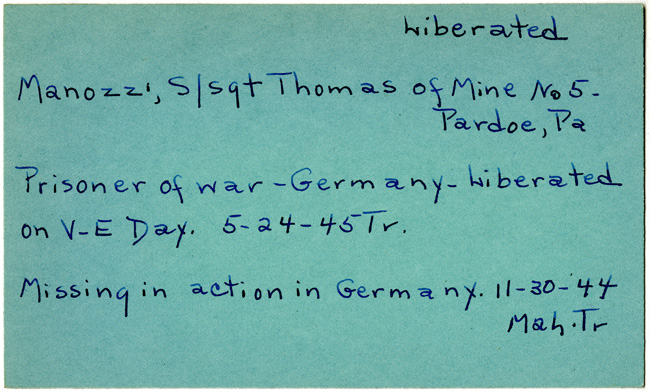 Liberated
Manozzi, S/sgt Thomas of Mine No 5-
Pardoe, Pa
Prisoner of war - Germany - Liberated
on V-E Day. 5-24-45 Tr.
Missing in action in Germany. 11-30-44
Mah. Tr